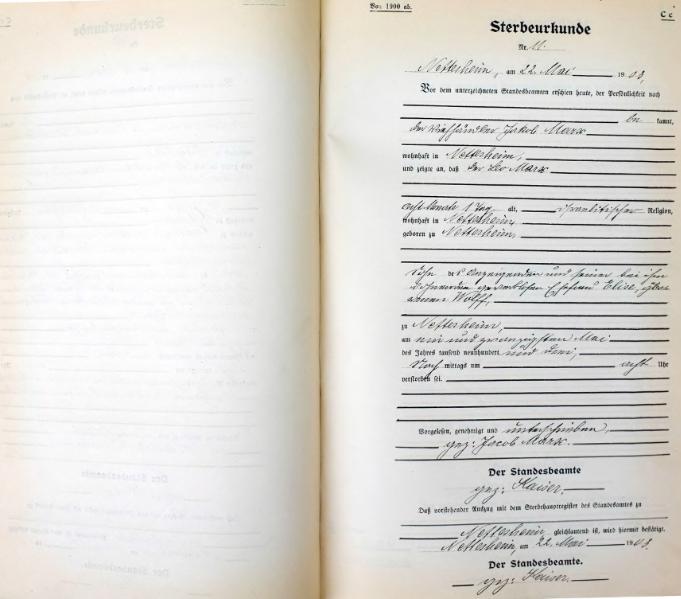 Von 1900 ab.
C c
Sterbeurkunde
Nr. 11.
Nettersheim, am 22. Mai 1903.
Vor dem unterzeichneten Standesbeamten erschien heute, der Persönlichkeit nach
be kannt,
der Viehhändler Jakob Marx
wohnhaft in Nettersheim,
und zeigte an, daß der Leo Marx
acht Monate 1 Tag alt, israelitischer Religion,
wohnhaft in Nettersheim,
geboren zu Nettersheim,
Sohn des Anzeigenden und seiner bei ihm
wohnenden Ehefrau Elise, gebo-
renen Wolff,
zu Nettersheim,
am ein und zwanzigsten Mai
des Jahres tausend neunhundert und drei,
Nach mittags um acht Uhr
verstorben sei.
Vorgelesen, genehmigt und unterschrieben,
gez: Jacob Marx.
Der Standesbeamte
gez: Kaiser.
Daß vorstehender Auszug mit dem Sterbehauptregister des Standesamtes zu
Nettersheim gleichlautend ist, wird hiermit bestätigt.
Nettersheim, am 22. Mai 1903.
Der Standesbeamte.
gez: Kaiser.